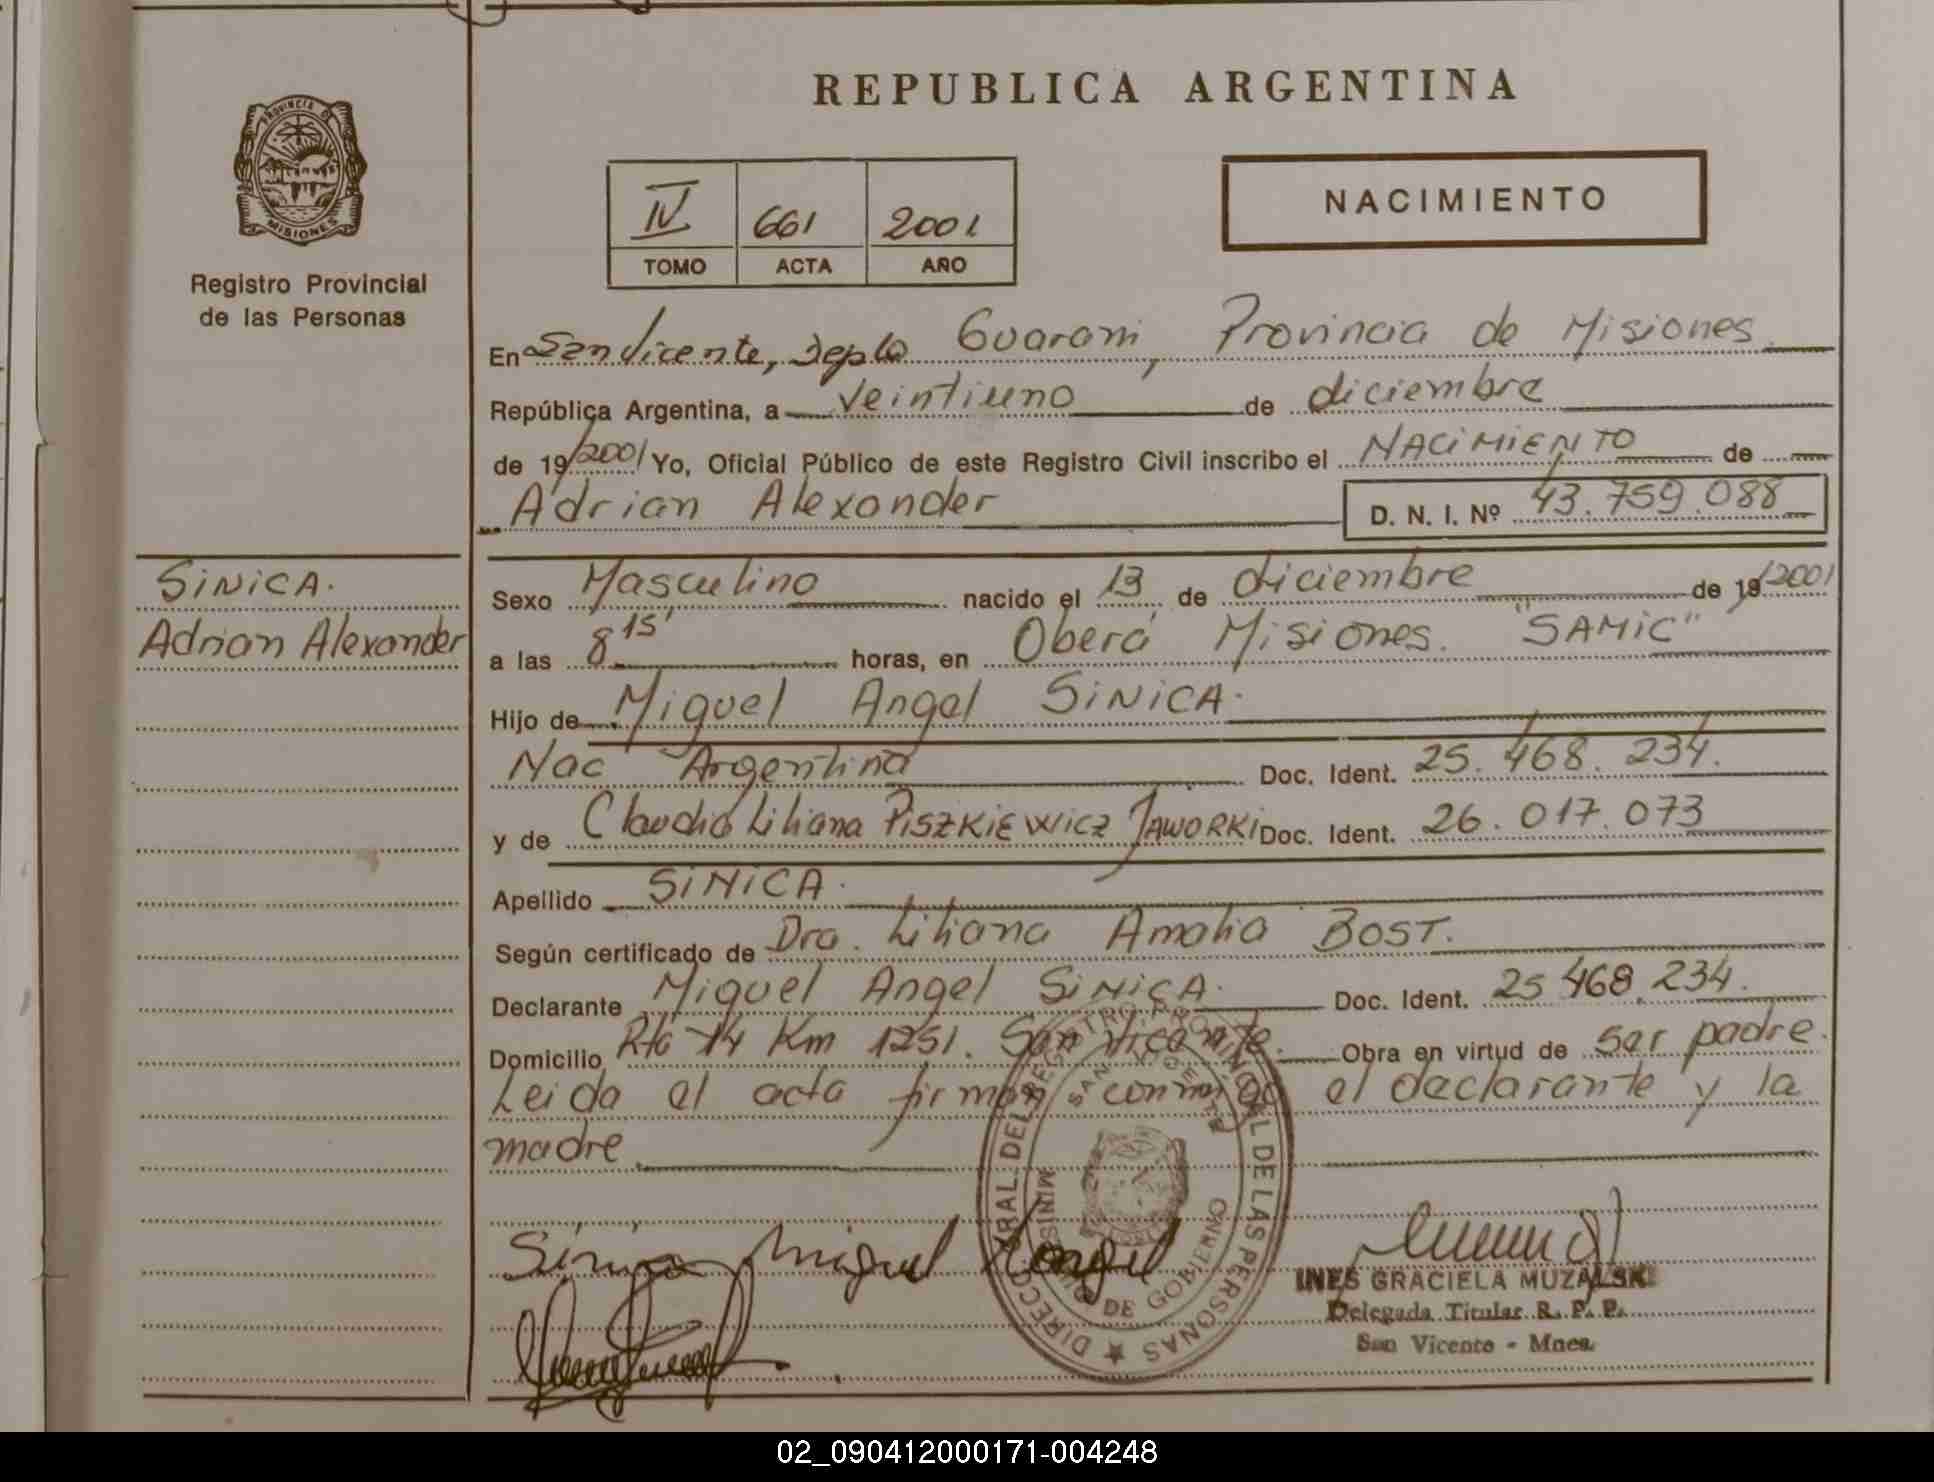 REPUBLICA ARGENTINA
PROVINCIA DE MISIONES
Registro Provincial
de las Personas
IV 661 2001
TOMO ACTA AÑO
NACIMIENTO
En San Vicente, Depto Guarani, Provincia de Misiones
República Argentina, a veintiuno de diciembre
de 19/2001 Yo, Oficial Público de este Registro Civil inscribo el NACIMIENTO de
Adrian Alexander D. N. I. Nº 43.759.088
SINICA.
Adrian Alexander
Sexo Masculino nacido el 13 de diciembre de 19/2001
a las 8 15' horas, en Oberá Misiones. "SAMIC"
Hijo de Miguel Angel SINICA.
Nac Argentina Doc. Ident. 25.468.234.
y de Claudia Liliana PISZKIEWICZ JAWORKI Doc. Ident. 26.017.073
Apellido SINICA.
Según certificado de Dra. Liliana Amalia BOST.
Declarante Miguel Angel SINICA. Doc. Ident. 25 468.234.
Domicilio Rta 14 Km 1251. San Vicente. Obra en virtud de ser padre.
Leida el acta firman conmigo el declarante y la
madre
Sinica Miguel Angel
DIRECC RAL DEL REGISTRO PROVINCIAL DE LAS PERSONAS
SAN VICENTE
MINIS DE GOBIERNO
INES GRACIELA MUZALSKI
Delegada Titular R. P. P.
San Vicente - Mnes.
02_090412000171-004248